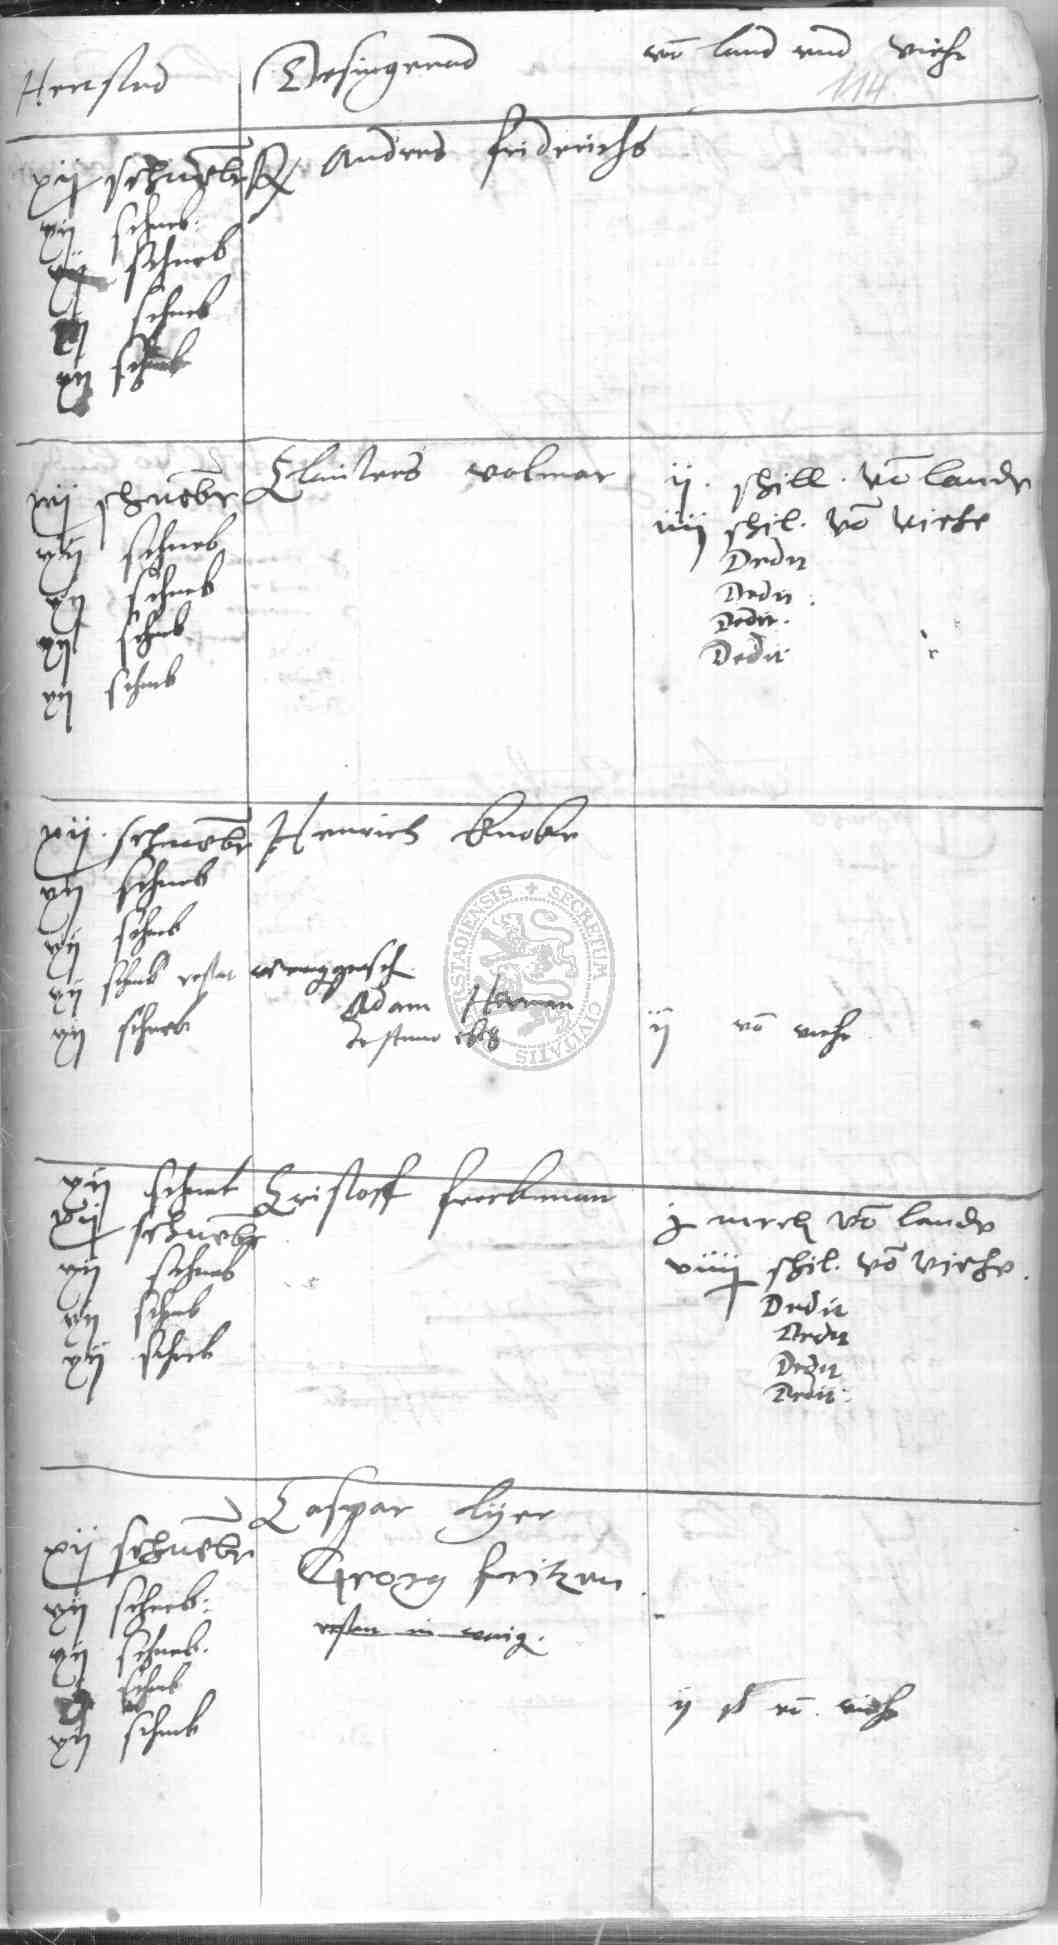 Herstad Desingerod võ land vnd viehe
114
xij schneber Andres fridrichs
xij schneb:
xij schneb
xij schneb
xij schneb
xij schneber Clausers volmar ij. schill. võ lande
xij schneb iiij schil. võ viehe
xij schneb Dedit
xij schneb Dedit
xij schneb Dedit.
Dedit
xij. schneber Henrich Knoke
xij schneb
xij schneb
xij schneb restat
Adam Herman
xij schneb ij võ viehe
SECRETUM CIVITATIS STADIENSIS
xij schneb Cristoff freckman
xij schneber j mrck võ lande
xij schneb viiij schil. võ viehe.
xij schneb Dedit
xij schneb Dedit
Dedit
Dedit.
Caspar lyer
xij schneber Georg fritzen
xij schneb:
xij schneb.
schneb
xij schneb ij ß võ. viehe